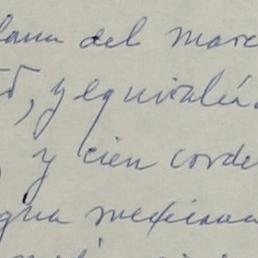 del marc
, y equivalía
, y cien corde
gua mexicana